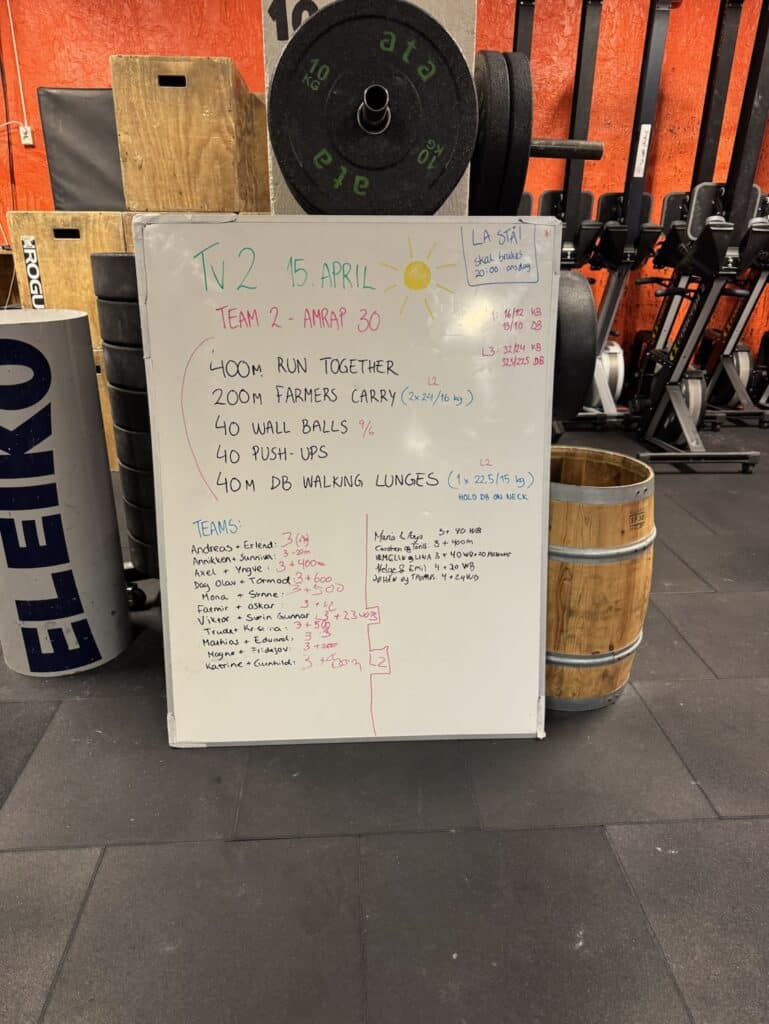 10
ata
10 KG
10 KG
ata
ROGUE
ELEIKO
TV2 15. APRIL
LA STÅ!
skal brukes
20:00 onsdag
TEAM 2 - AMRAP 30
16/12 KB
13/10 DB
L3: 32/24 KB
32,5/22,5 DB
400M RUN TOGETHER
200M FARMERS CARRY (2x24/16 kg)
L2
40 WALL BALLS 9/6
40 PUSH-UPS
40M DB WALKING LUNGES (1x 22,5/15 kg)
L2
HOLD DB ON NECK
TEAMS:
Andreas + Erlend: 3
Annikken + Sunniva: 3
Axel + Yngve: 3+400m
Dag Olav + Tormod 3+600
Mona + Synne: 3+500
Fatmir + oskar: 3
Viktor + Svein Gunnar: 3+23
Trude + 3+500
Mathias + Edvard: 3
Magne + 3+200
Katrine + Gunhild: 3
Maria & 3+40 WB
Carsten og 3+400m
3+40WB+20
Helge & Emil 4+20 WB
og 4+24WB
2